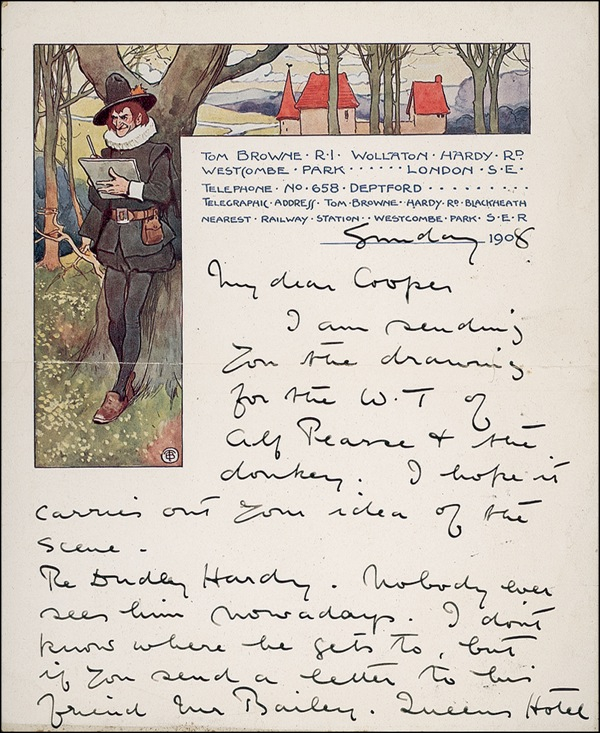 TOM BROWNE · R·I· WOLLATON · HARDY · RD
WESTCOMBE · PARK · · · · · · LONDON · S·E·
TELEPHONE · NO · 658 · DEPTFORD · · · · · · · · ·
TELEGRAPHIC · ADDRESS · TOM · BROWNE · HARDY · RD · BLACKHEATH
NEAREST · RAILWAY · STATION · · WESTCOMBE · PARK · S·E·R
Sunday 1908
My dear Cooper
I am sending
you the drawing
for the W.T of
Alf Pearse & the
donkey. I hope it
carries out your idea of the
scene.
Re Dudley Hardy. Nobody ever
sees him nowadays. I don't
know where he gets to, but
if you send a letter to his
friend Mr Bailey. Queens Hotel
TB